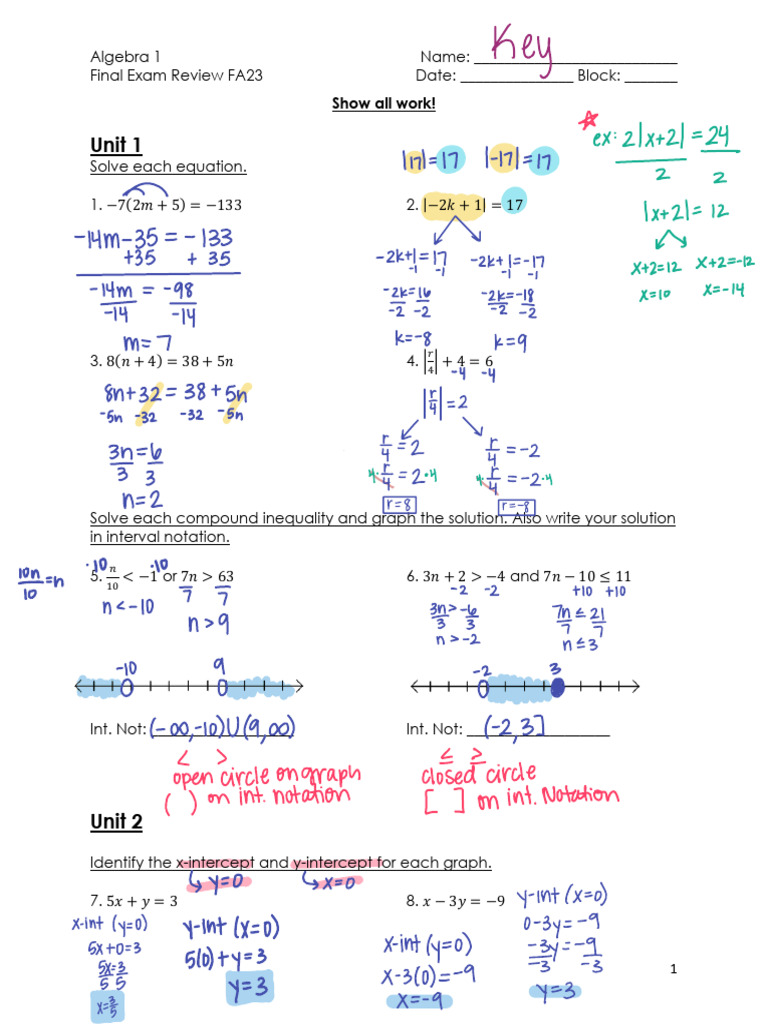 Algebra 1
Name: Key
Final Exam Review FA23
Date: Block:
Show all work!
Unit 1
Solve each equation.
|17| = 17 |-17| = 17
☆ ex: 2|x+2| = 24
2 2
|x+2| = 12
x+2=12 x+2=-12
x=10 x=-14
1. −7(2m + 5) = −133
-14m-35 = -133
+35 +35
-14m = -98
-14 -14
m=7
2. |−2k + 1| = 17
-2k+1=17 -2k+1=-17
-1 -1 -1 -1
-2k=16 -2k=-18
-2 -2 -2 -2
k=-8 k=9
3. 8(n + 4) = 38 + 5n
8n+32 = 38+5n
-5n -32 -32 -5n
3n=6
3 3
n=2
4. |r/4| + 4 = 6
-4 -4
|r/4| = 2
r/4 = 2 r/4 = -2
4·r/4 = 2·4 4·r/4 = -2·4
r=8 r=-8
Solve each compound inequality and graph the solution. Also write your solution
in interval notation.
10n/10 = n
5. n/10 < −1 or 7n > 63
·10 ·10 7 7
n<-10 n>9
-10 9
Int. Not: (-∞,-10)U(9,∞)
< >
open circle on graph
( ) on int. notation
6. 3n + 2 > −4 and 7n − 10 ≤ 11
-2 -2 +10 +10
3n>-6 7n≤21
3 3 7 7
n>-2 n≤3
-2 3
Int. Not: (-2,3]
≤ ≥
closed circle
[ ] on int. Notation
Unit 2
Identify the x-intercept and y-intercept for each graph.
y=0 x=0
7. 5x + y = 3
x-int (y=0)
5x+0=3
5x=3
5 5
x=3/5
y-int (x=0)
5(0)+y=3
y=3
8. x − 3y = −9
x-int (y=0)
x-3(0)=-9
x=-9
y-int (x=0)
0-3y=-9
-3y=-9
-3 -3
y=3
1